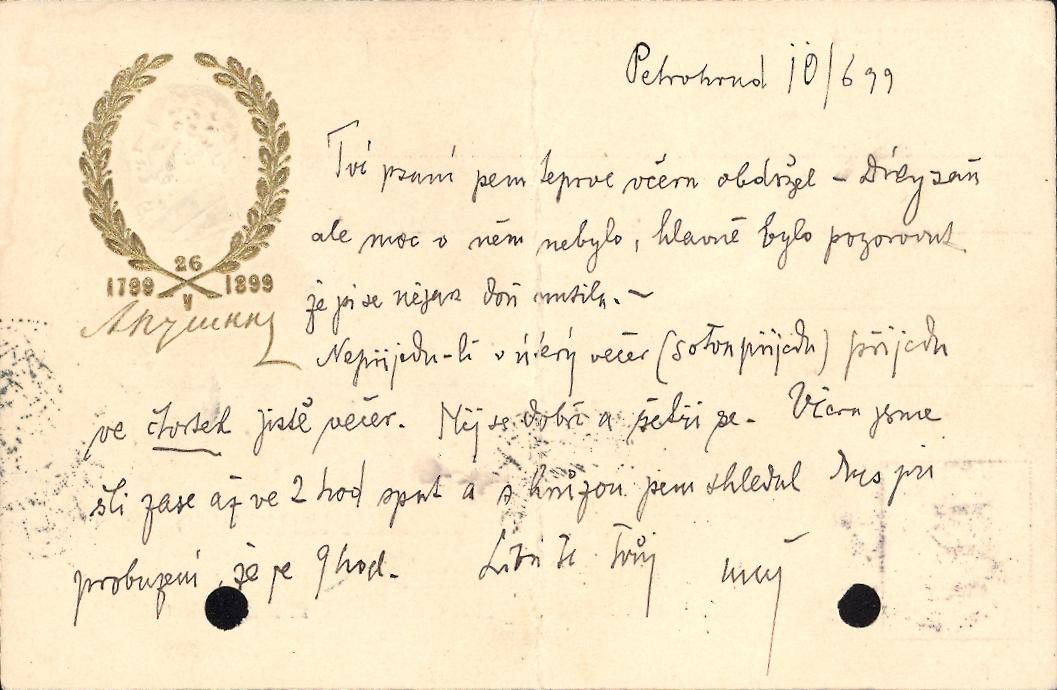 Petrohrad 10/6 99
26
1799 V 1899
А Пушкинъ
Tvé psaní jsem teprve včera obdržel – Díky zaň
ale moc v něm nebylo, hlavně bylo pozorovat
že jsi se nějak doň nutila. –
Nepřijedu-li v úterý večer (sotva přijedu) přijedu
ve čtvrtek jistě večer. Měj se dobře a šetři se. Včera jsme
šli zase až ve 2 hod spat a s hrůzou jsem shledal dnes při
probuzení, že je 9 hod. Líbá tě Tvůj